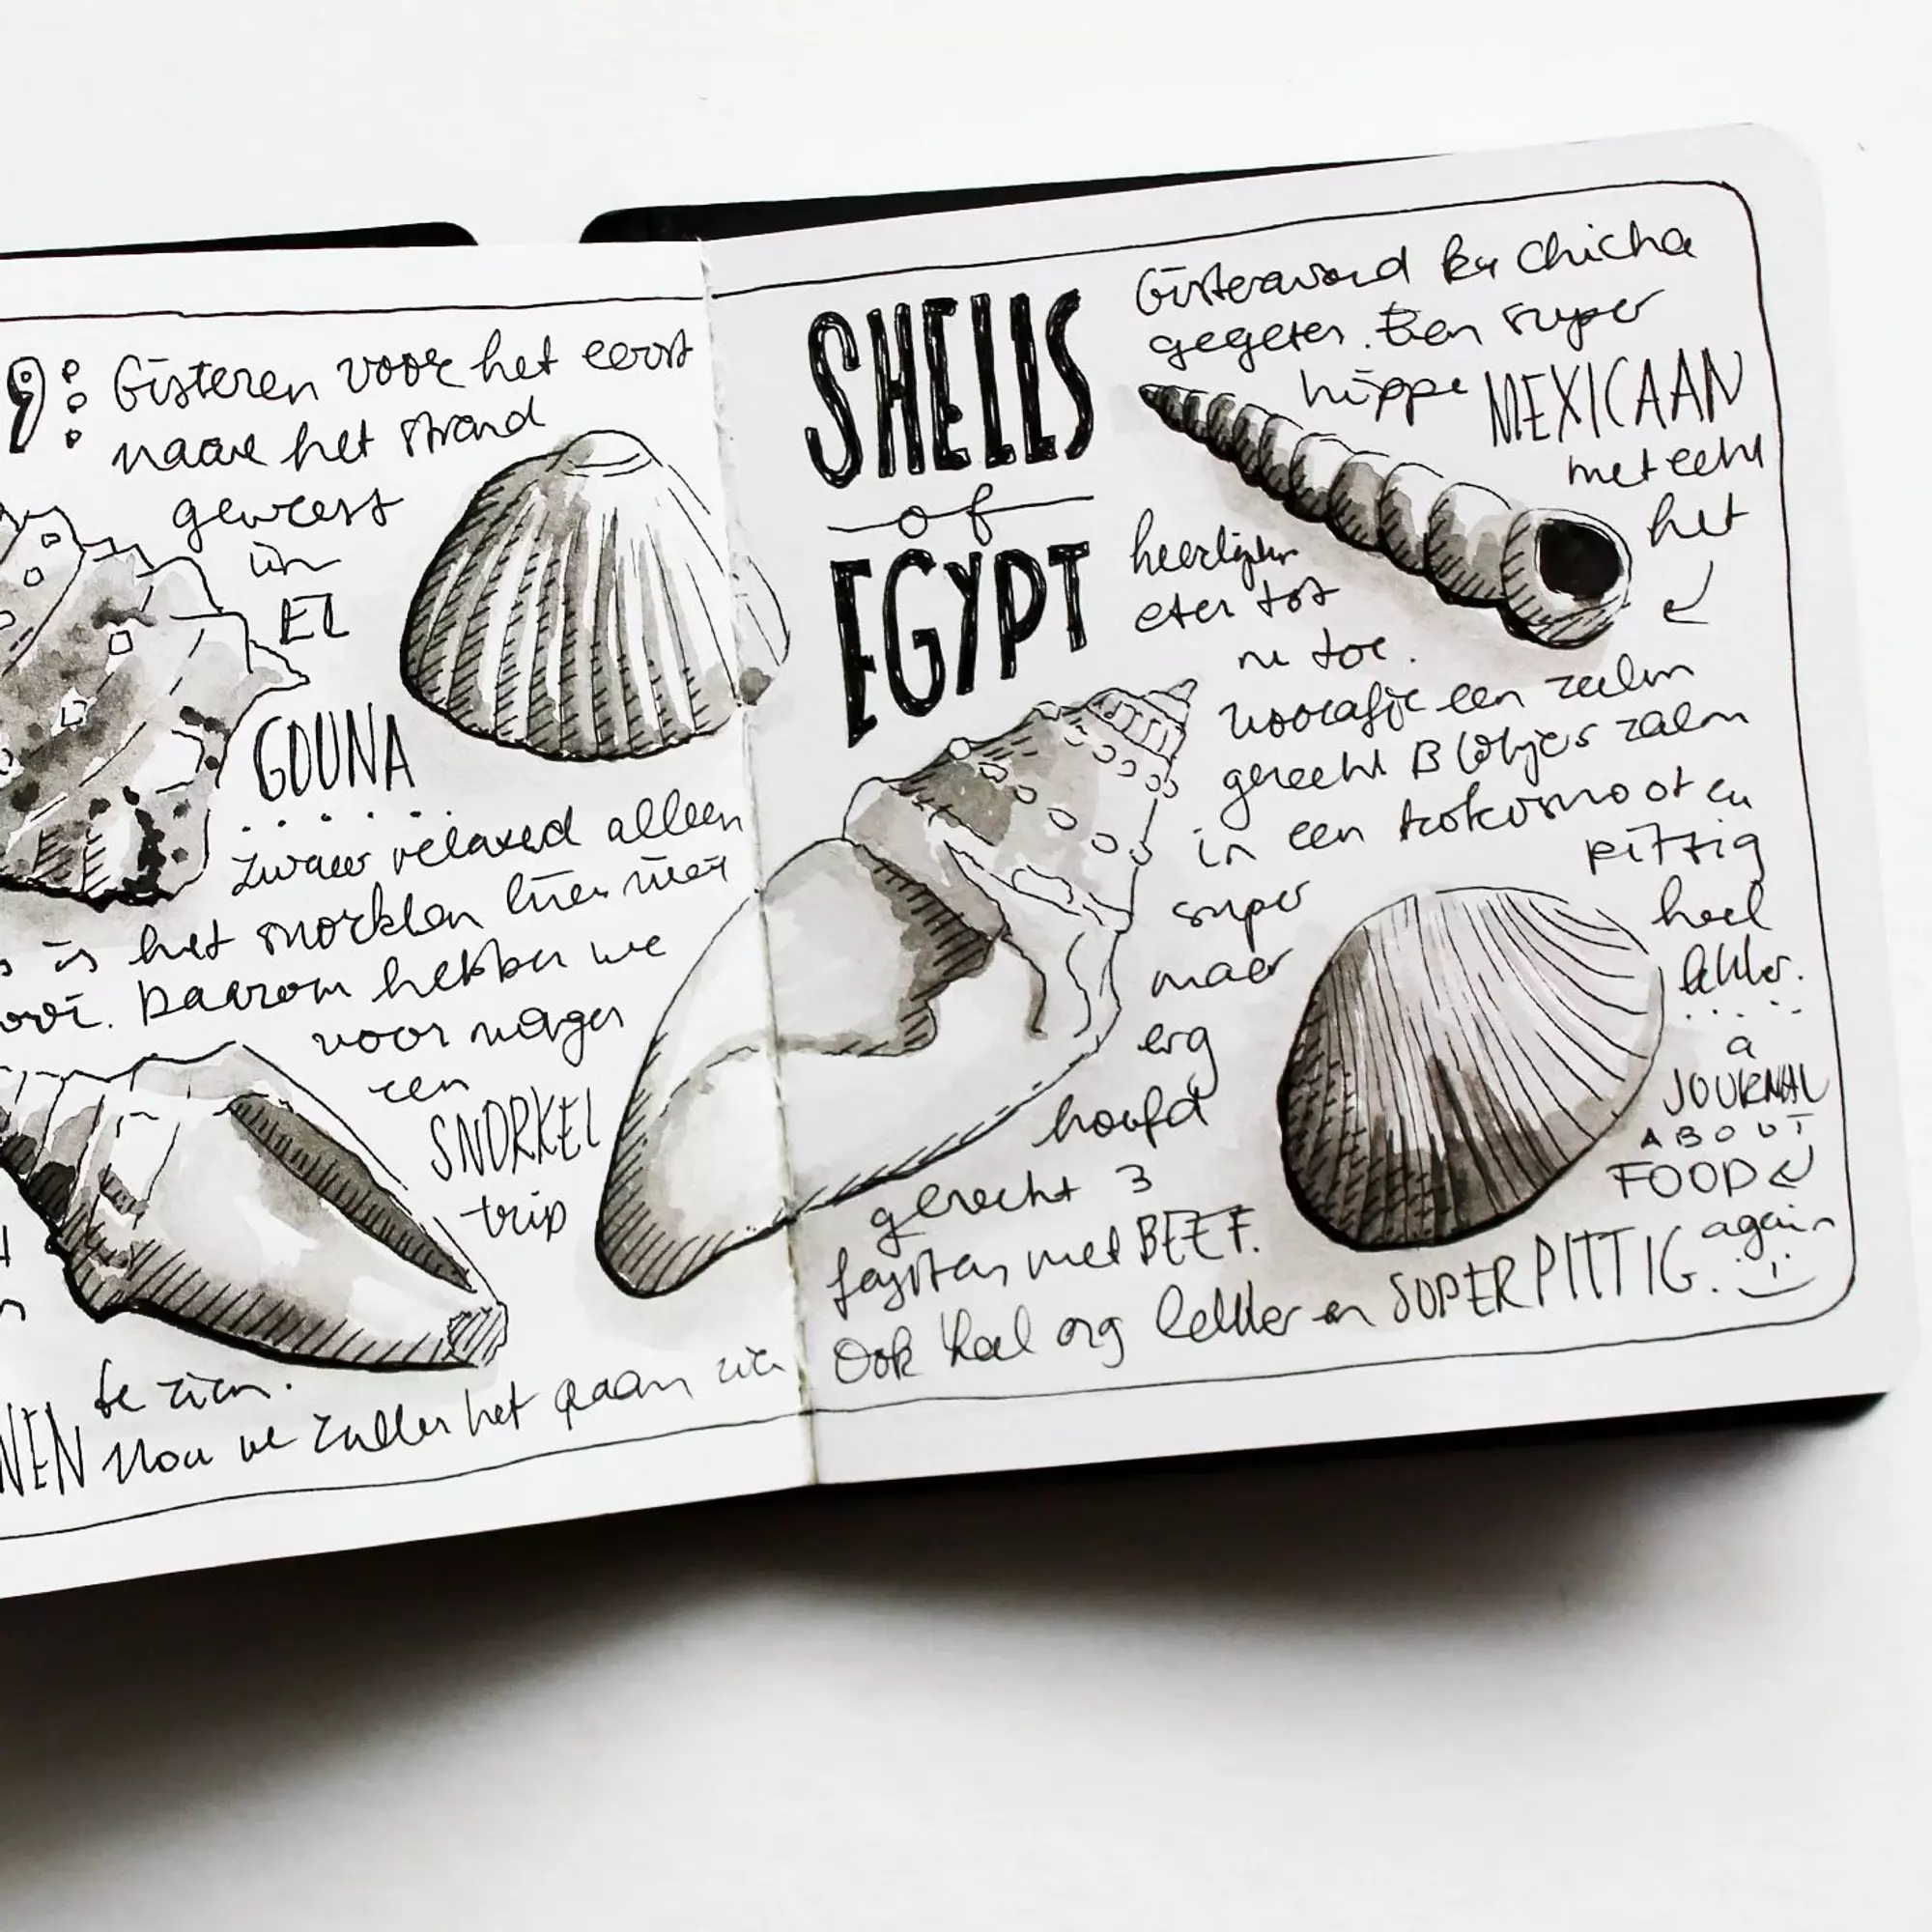 9: Gisteren voor het eerst
naar het strand
geweest
in
EL
GOUNA
zwaar relaxed alleen
is het snorklen hier niet
ooi. Daarom hebben we
voor morgen
een
SNORKEL
trip
te zien.
NEN Nou we zullen het gaan zien
SHELLS
of
EGYPT
Gisteravond by Chicha
gegeten. Een super
hippe MEXICAAN
met echt
het
heerlijkste
eten tot
nu toe.
voorafje een
gerecht Blokjes zalm
in een kokosnoot en
super pittig
maar heel
erg lekker.
hoofd
gerecht 3
fajitas met BEEF.
Ook heel erg lekker en SUPER PITTIG.
a
JOURNAL
ABOUT
FOOD
again